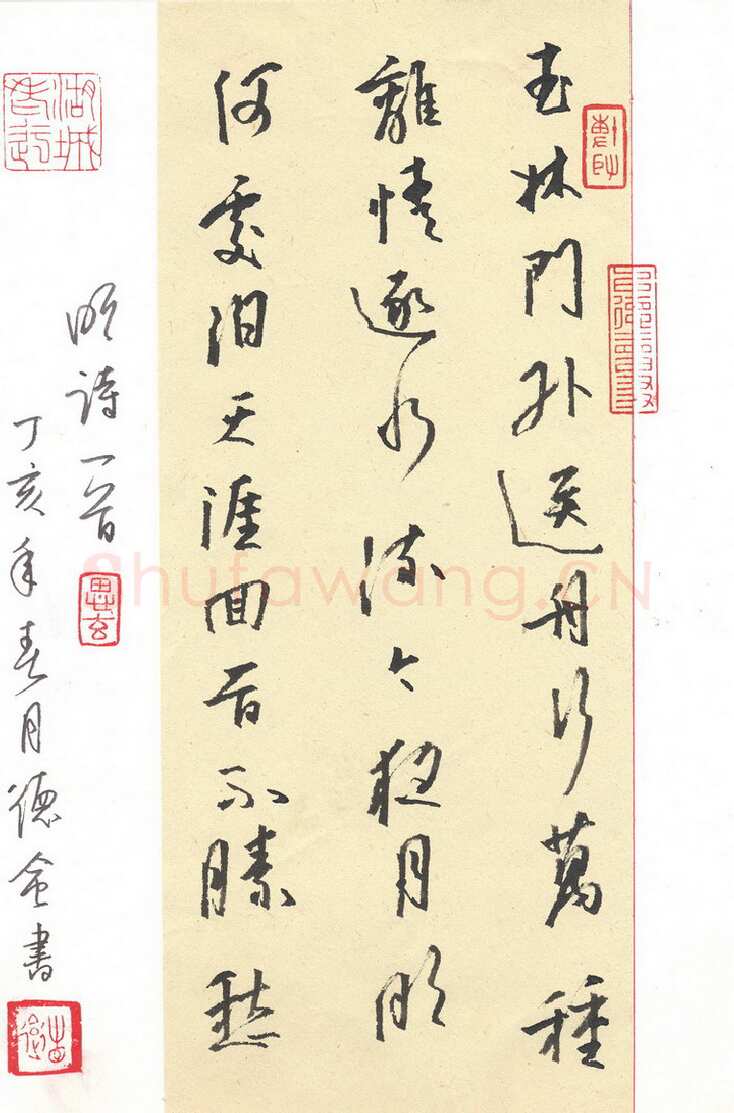 武林門外送舟行萬種
離情逐水流今夜月明
何處泊天涯回首不勝愁
明詩一首
丁亥年春月德金書
Shufawang.CN